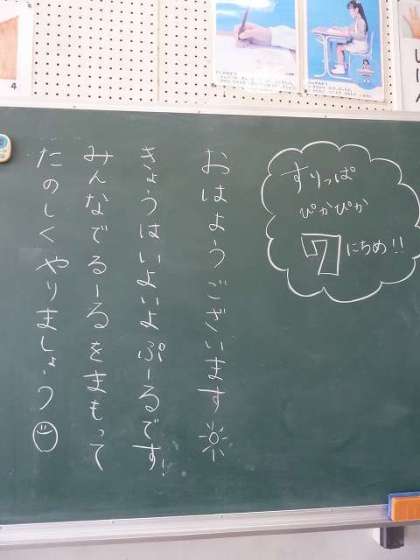 すりっぱ
ぴかぴか
7にちめ!!
おはようございます
きょうはいよいよぷーるです!
みんなでるーるをまもって
たのしくやりましょう